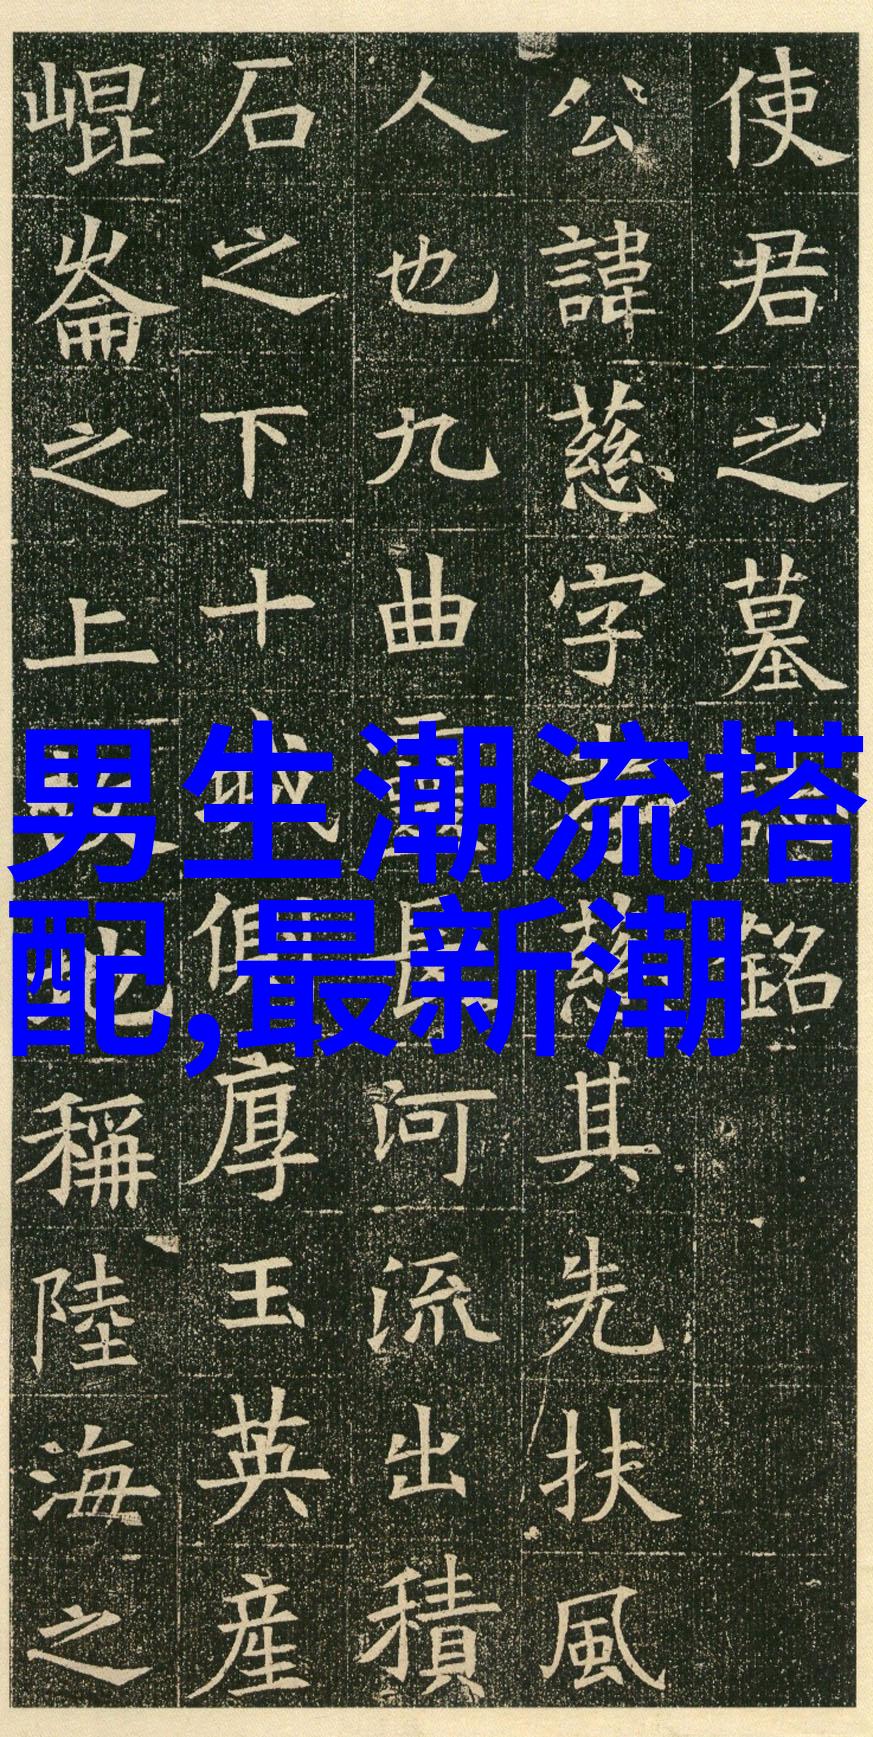 使君之墓誌銘
公諱慈字孝慈其先扶風
人也九曲靈長河流出積
石之下十城側厚玉英産
崐崙之上地稱陸海之
男生潮流搭
配,最新潮